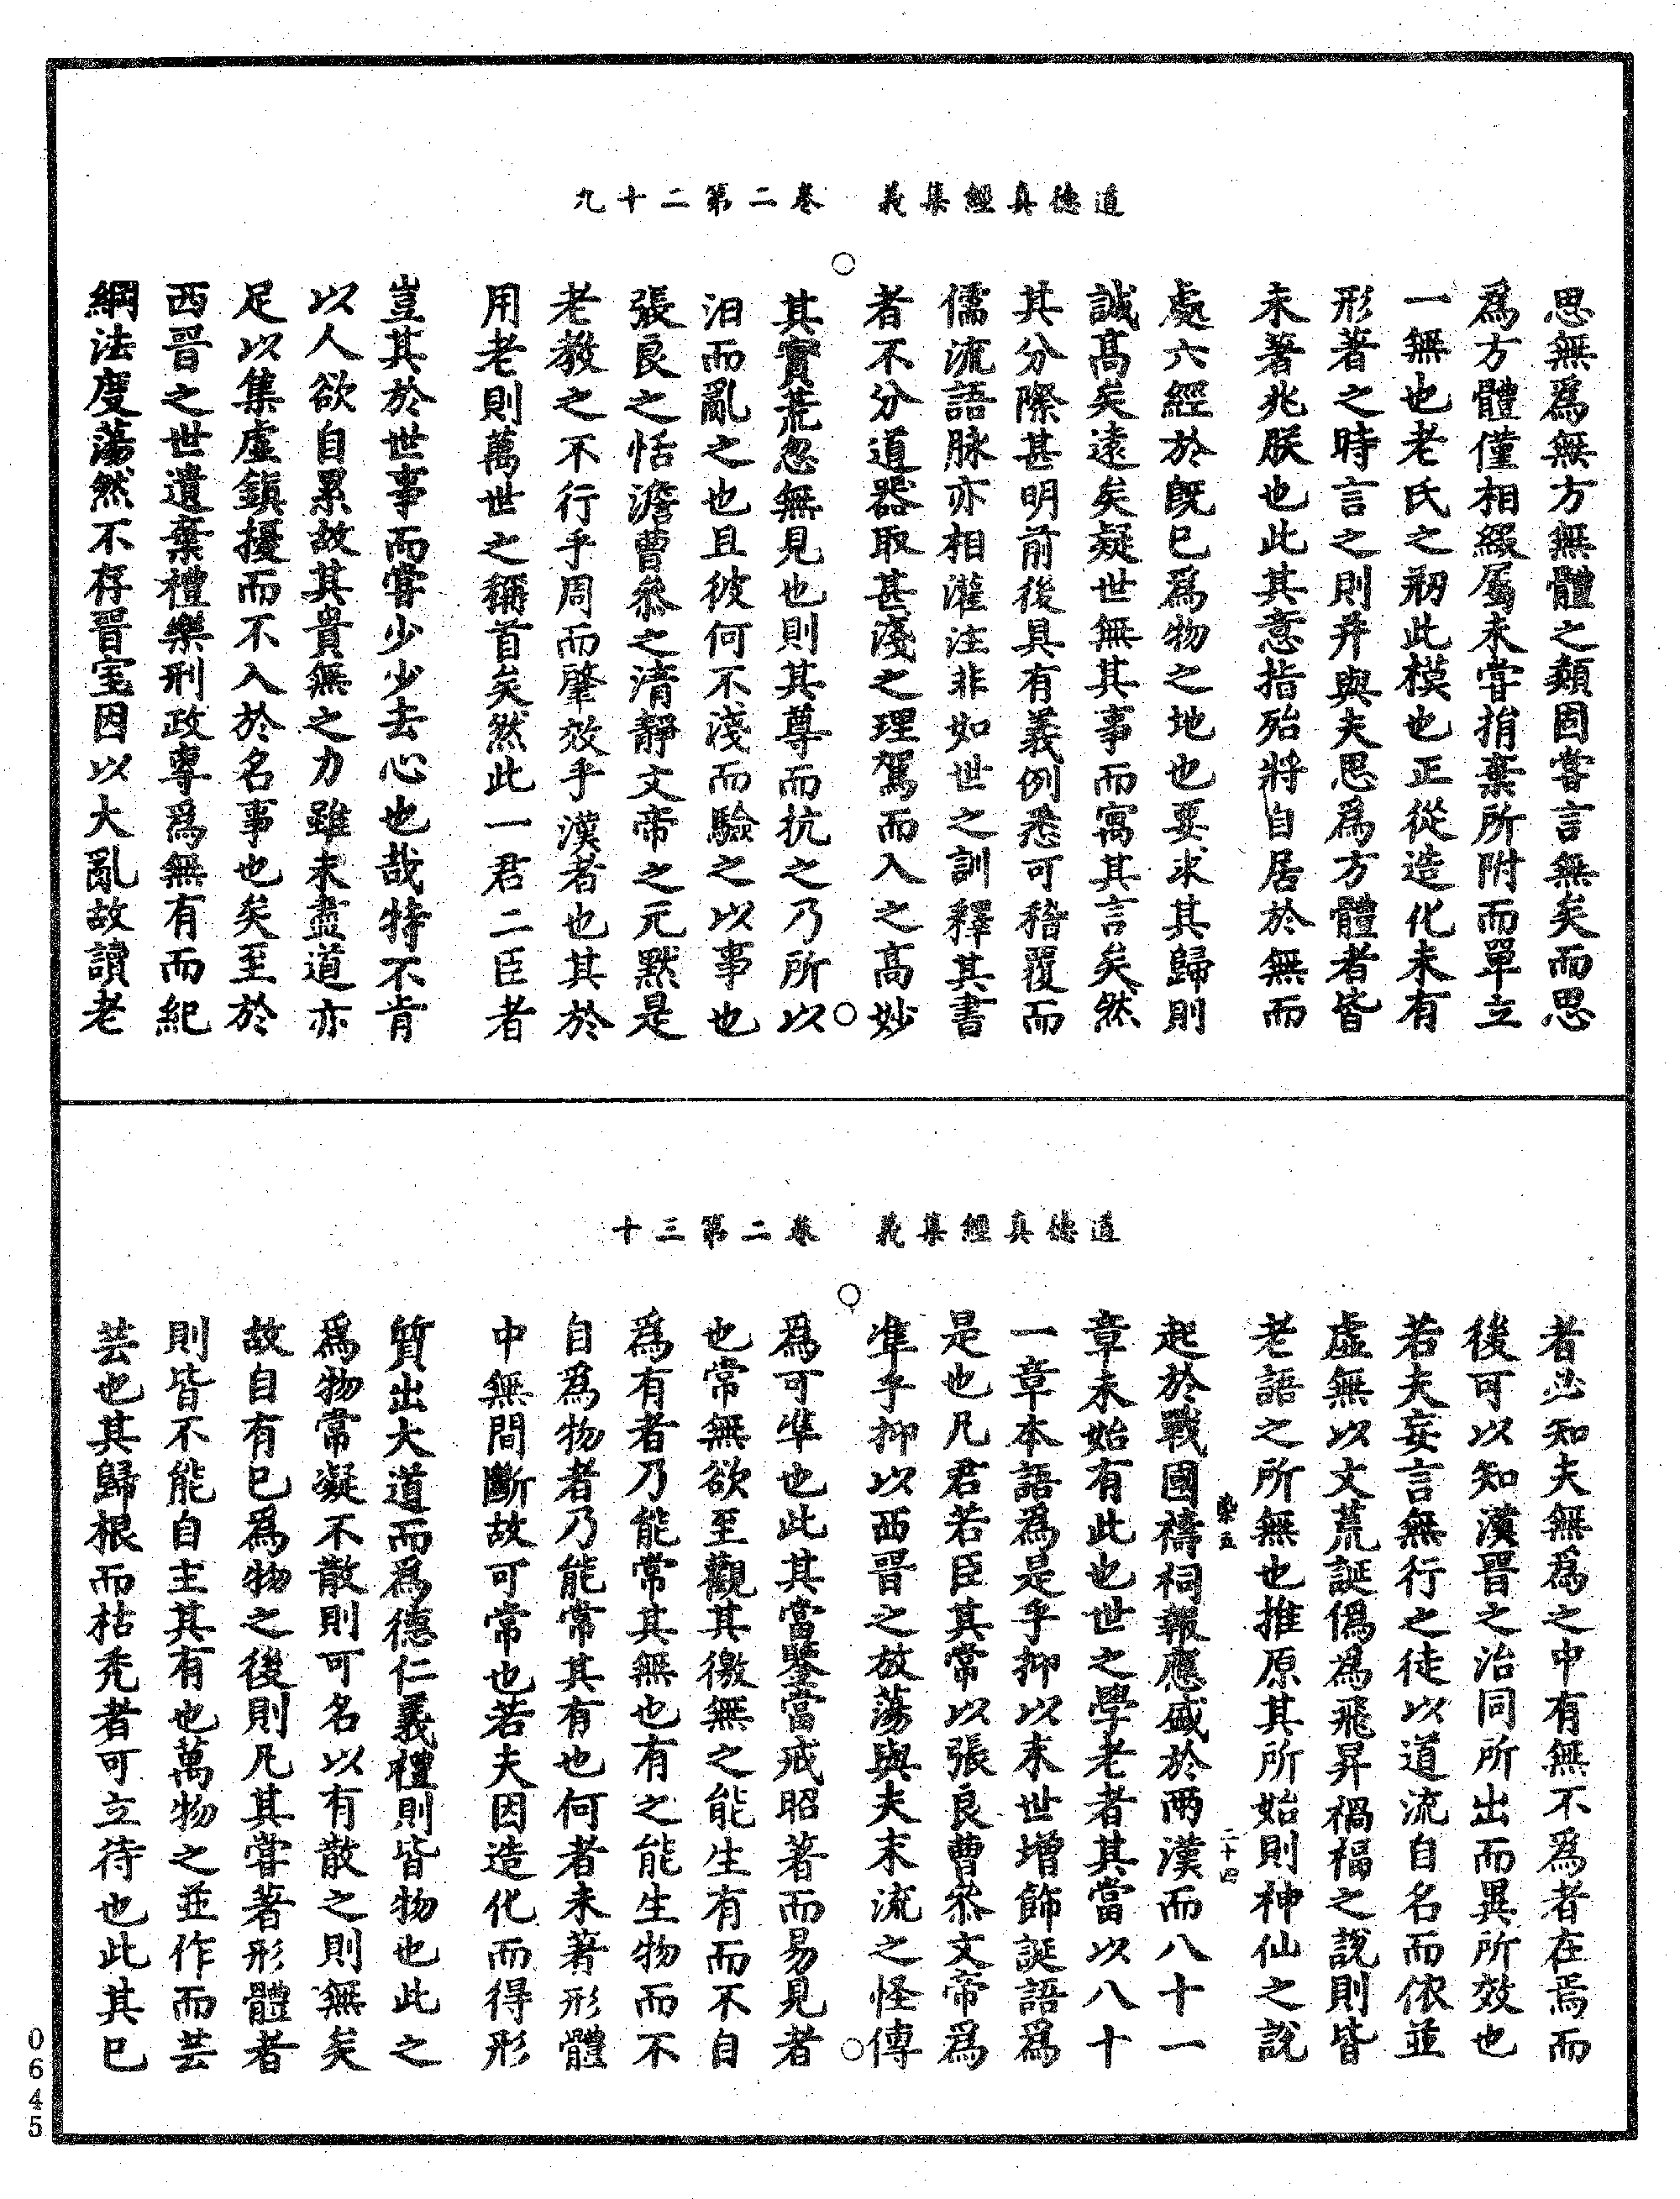 道德真經集義　卷二第二十九
思無爲無方無體之類固嘗言無矣而思
爲方體僅相綴屬未嘗捐棄所附而單立
一無也老氏之刱此模也正從造化未有
形著之時言之則并與夫思爲方體者皆
未著兆朕也此其意指殆將自居於無而
處六經於旣已爲物之地也要求其歸則
誠高矣遠矣疑世無其事而寓其言矣然
其分際甚明前後具有義例悉可稽覆而
儒流語脉亦相灌注非如世之訓釋其書
者不分道器取甚淺之理駕而入之高妙
其實荒忽無見也則其尊而抗之乃所以
汨而亂之也且彼何不淺而驗之以事也
張良之恬澹曹叅之清靜文帝之元默是
老教之不行乎周而肇效乎漢者也其於
用老則萬世之稱首矣然此一君二臣者
豈其於世事而嘗少少去心也哉特不肯
以人欲自累故其貴無之力雖未盡道亦
足以集虛鎮擾而不入於名事也矣至於
西晉之世遺棄禮樂刑政專爲無有而紀
綱法度蕩然不存晉室因以大亂故讀老
道德真經集義　卷二第三十
者必知夫無爲之中有無不爲者在焉而
後可以知漢晉之治同所出而異所效也
若夫妄言無行之徒以道流自名而依並
虛無以文荒誕僞爲飛昇禍福之說則皆
老語之所無也推原其所始則神仙之說
二十四
起於戰國禱祠報應盛於兩漢而八十一
章未始有此也世之學老者其當以八十
一章本語爲是乎抑以末世增飾誕語爲
是也凡君若臣其常以張良曹叅文帝爲
準乎抑以西晉之放蕩與夫末流之怪傳
爲可準也此其當鑒當戒昭著而易見者
也常無欲至觀其徼無之能生有而不自
爲有者乃能常其無也有之能生物而不
自爲物者乃能常其有也何者未著形體
中無間斷故可常也若夫因造化而得形
質出大道而爲德仁義禮則皆物也此之
爲物常凝不散則可名以有散之則無矣
故自有已爲物之後則凡其嘗著形體者
則皆不能自主其有也萬物之並作而芸
芸也其歸根而枯禿者可立待也此其已
0645